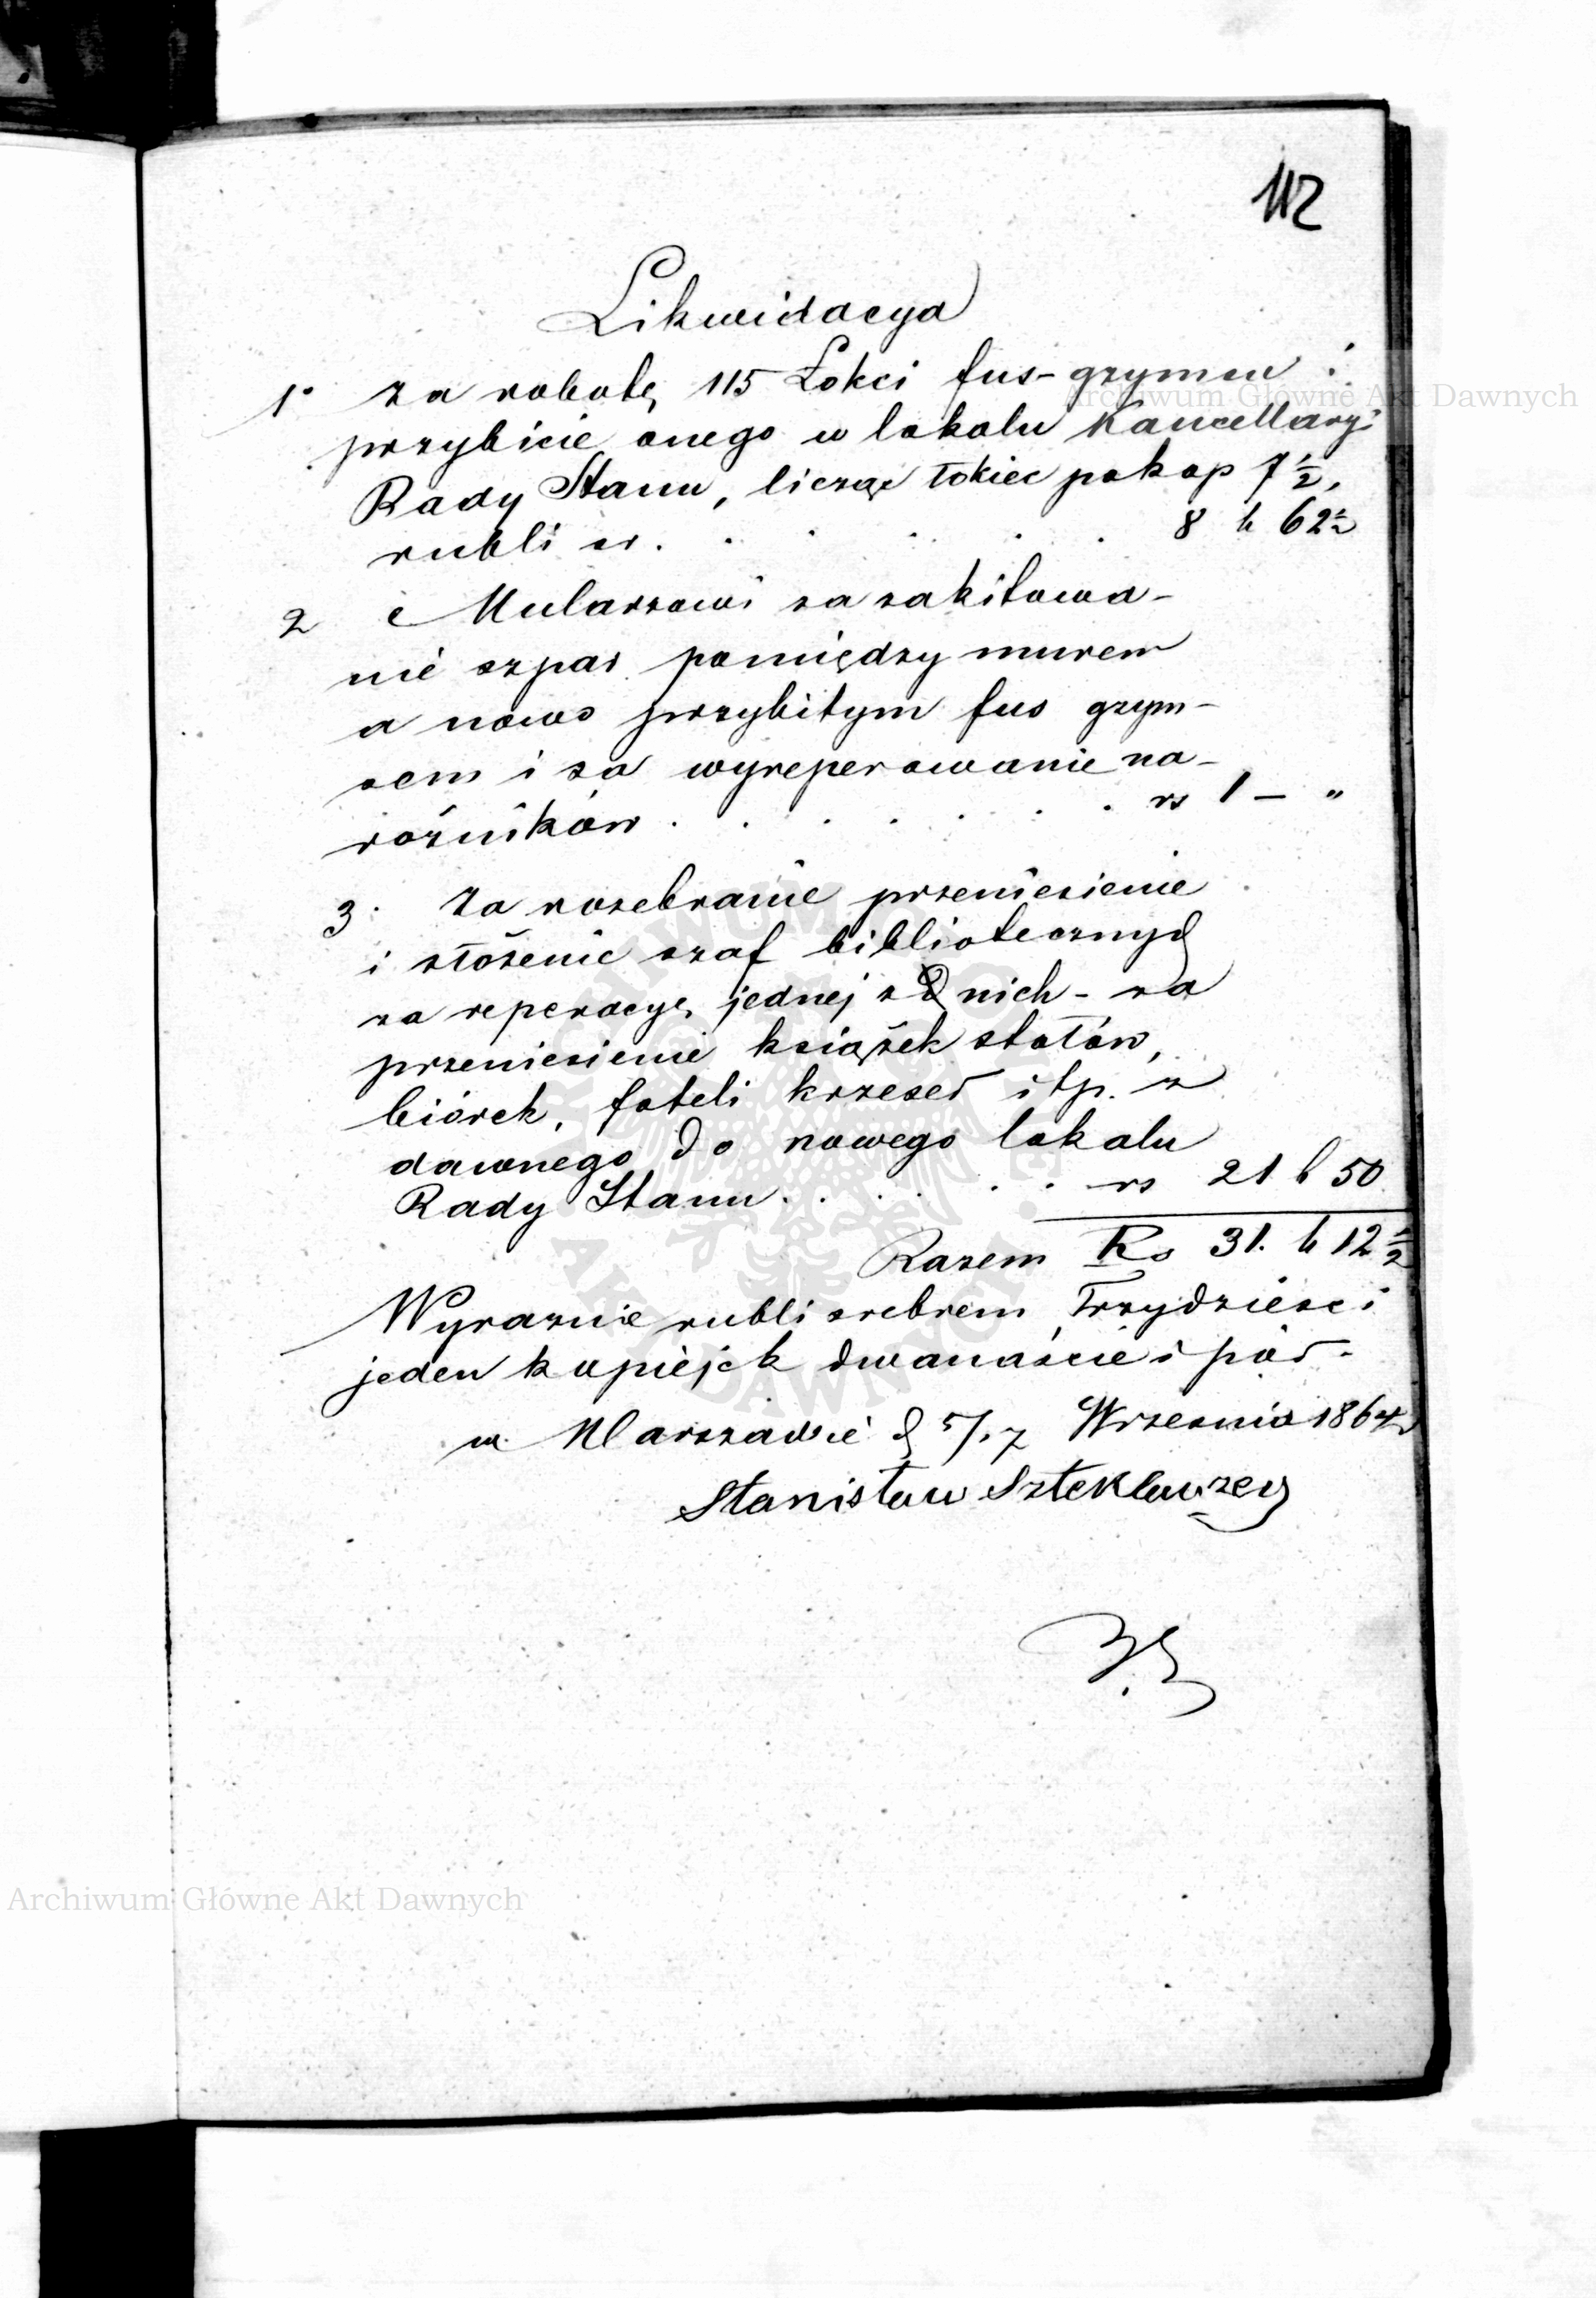 112
Likwidacya
1° za robotę 115 Łokci fus-grymsu i
przybicie onego w lokalu Kancellaryi
Rady Stanu, licząc łokiec po kop 7 1/2,
rubli sr. . . . . . 8 k 62 1/2
2 Mularzowi za zakitowa-
nie szpar pomiędzy murem
a nowo przybitym fus grym-
sem i za wyreperowanie na-
rożników . . . . . . . rs 1 — "
3. Za rozebranie przeniesienie
i złożenie szaf bibliotecznych
za reperacyę jednej z nich - za
przeniesienie książek stołów,
biórek, foteli krzeseł itp. z
dawnego do nowego lokalu
Rady Stanu . . . . . rs 21 k 50
Razem Rs 31. k 12 1/2
Wyraznie rubli srebrem Trzydziesci
jeden kopiejek dwanaście i pół -
w Warszawie d 5/17 Wrzesnia 1864
Stanisław
Archiwum Główne Akt Dawnych
Archiwum Główne Akt Dawnych
ARCHIWUM GŁÓWNE AKT DAWNYCH